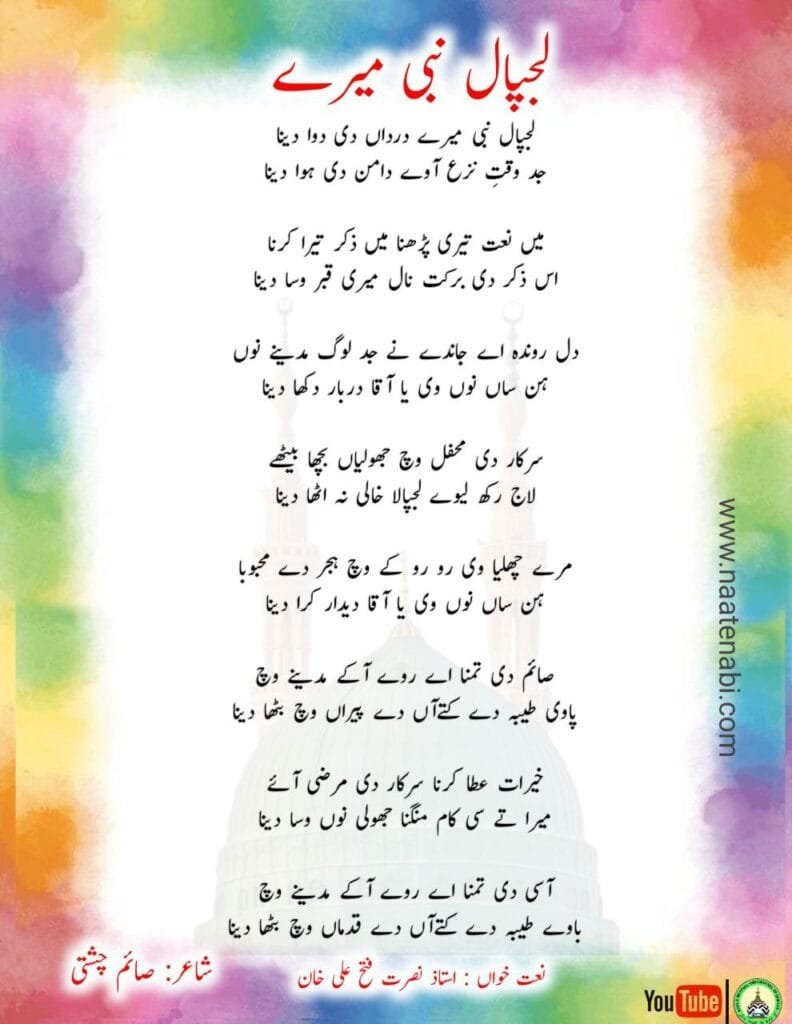 لجپال نبی میرے
لجپال نبی میرے درداں دی دوا دینا
جد وقتِ نزع آوے دامن دی ہوا دینا
میں نعت تیری پڑھنا میں ذکر تیرا کرنا
اس ذکر دی برکت نال میری قبر وسا دینا
دل روندہ اے جاندے نے جد لوگ مدینے نوں
ہن ساں نوں وی یا آقا دربار دکھا دینا
سرکار دی محفل وچ جھولیاں بچھا بیٹھے
لاج رکھ لیوے لجپالا خالی نہ اٹھا دینا
مرے چھلیا وی رو رو کے وچ ہجر دے محبوبا
ہن ساں نوں وی یا آقا دیدار کرا دینا
صائم دی تمنا اے روے آکے مدینے وچ
پاوی طیبہ دے کتےآں دے پیراں وچ بٹھا دینا
خیرات عطا کرنا سرکار دی مرضی آئے
میرا تے سی کام منگنا جھولی نوں وسا دینا
آسی دی تمنا اے روے آکے مدینے وچ
باوے طیبہ دے کتےآں دے قدماں وچ بٹھا دینا
شاعر: صائم چشتی
نعت خواں : استاذ نصرت فتح علی خان
www.naatenabi.com
YouTube